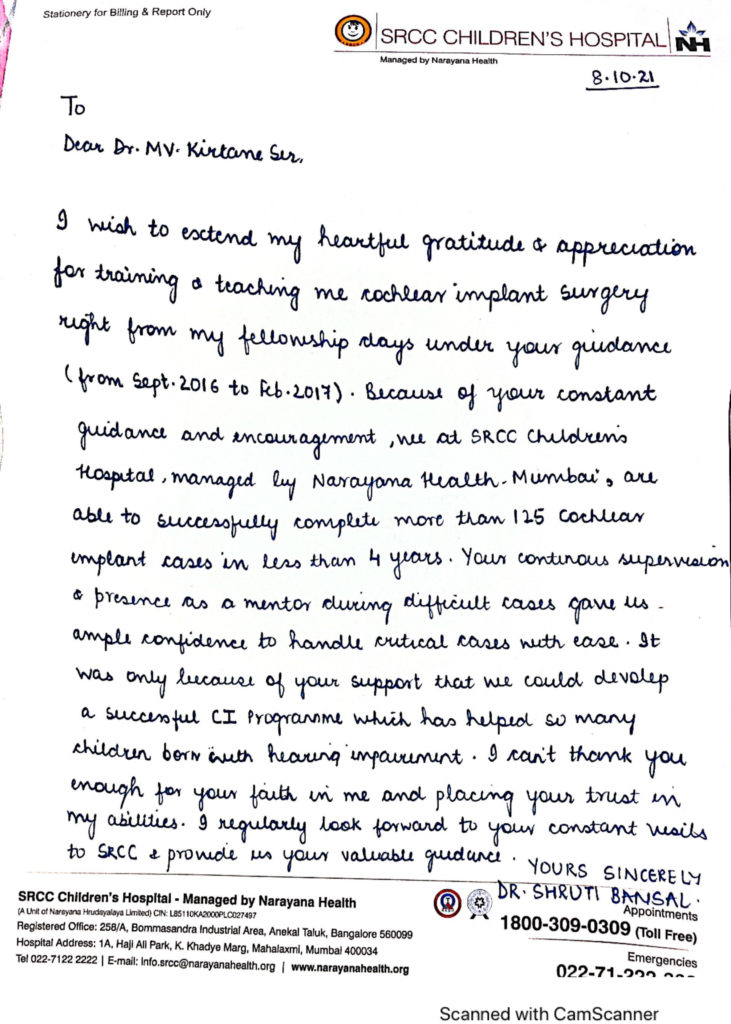 Stationery for Billing & Report Only
SRCC CHILDREN'S HOSPITAL NH
Managed by Narayana Health
8.10.21
To
Dear Dr. MV. Kirtane Ser,
I wish to esctend my heartful gratitude & appreciation
for training & teaching me cochlear implant surgery
right from my fellowship days under your guidance
(from Sept. 2016 to Feb. 2017). Because of your constant
guidance and encouragement, we at SRCC Children's
Hospital, managed by Narayana Health. Mumbai, are
able to successfully complete more than 125 Cochlear
implant cases in less than 4 years. Your continous supervision
& presence as a mentor during difficult cases gave us -
ample confidence to handle critical cases with ease. It
was only because of your support that we could devolep
a successful CI Programme which has helped so many
children born with hearing impairment. I can't thank you
enough for your faith in me and placing your trust in
my abilities. I regularly look forward to your constant visits
to SRCC & provide us your valuable guidance.
YOURS SINCERELY
DR. SHRUTI BANSAL.
SRCC Children's Hospital - Managed by Narayana Health
(A Unit of Narayana Hrudayalaya Limited) CIN: L85110KA2000PLC027497
Registered Office: 258/A, Bommasandra Industrial Area, Anekal Taluk, Bangalore 560099
Hospital Address: 1A, Haji Ali Park, K. Khadye Marg, Mahalaxmi, Mumbai 400034
Tel 022-7122 2222 | E-mail: Info.srcc@narayanahealth.org | www.narayanahealth.org
Appointments
1800-309-0309 (Toll Free)
Emergencies
022-71-222
Scanned with CamScanner